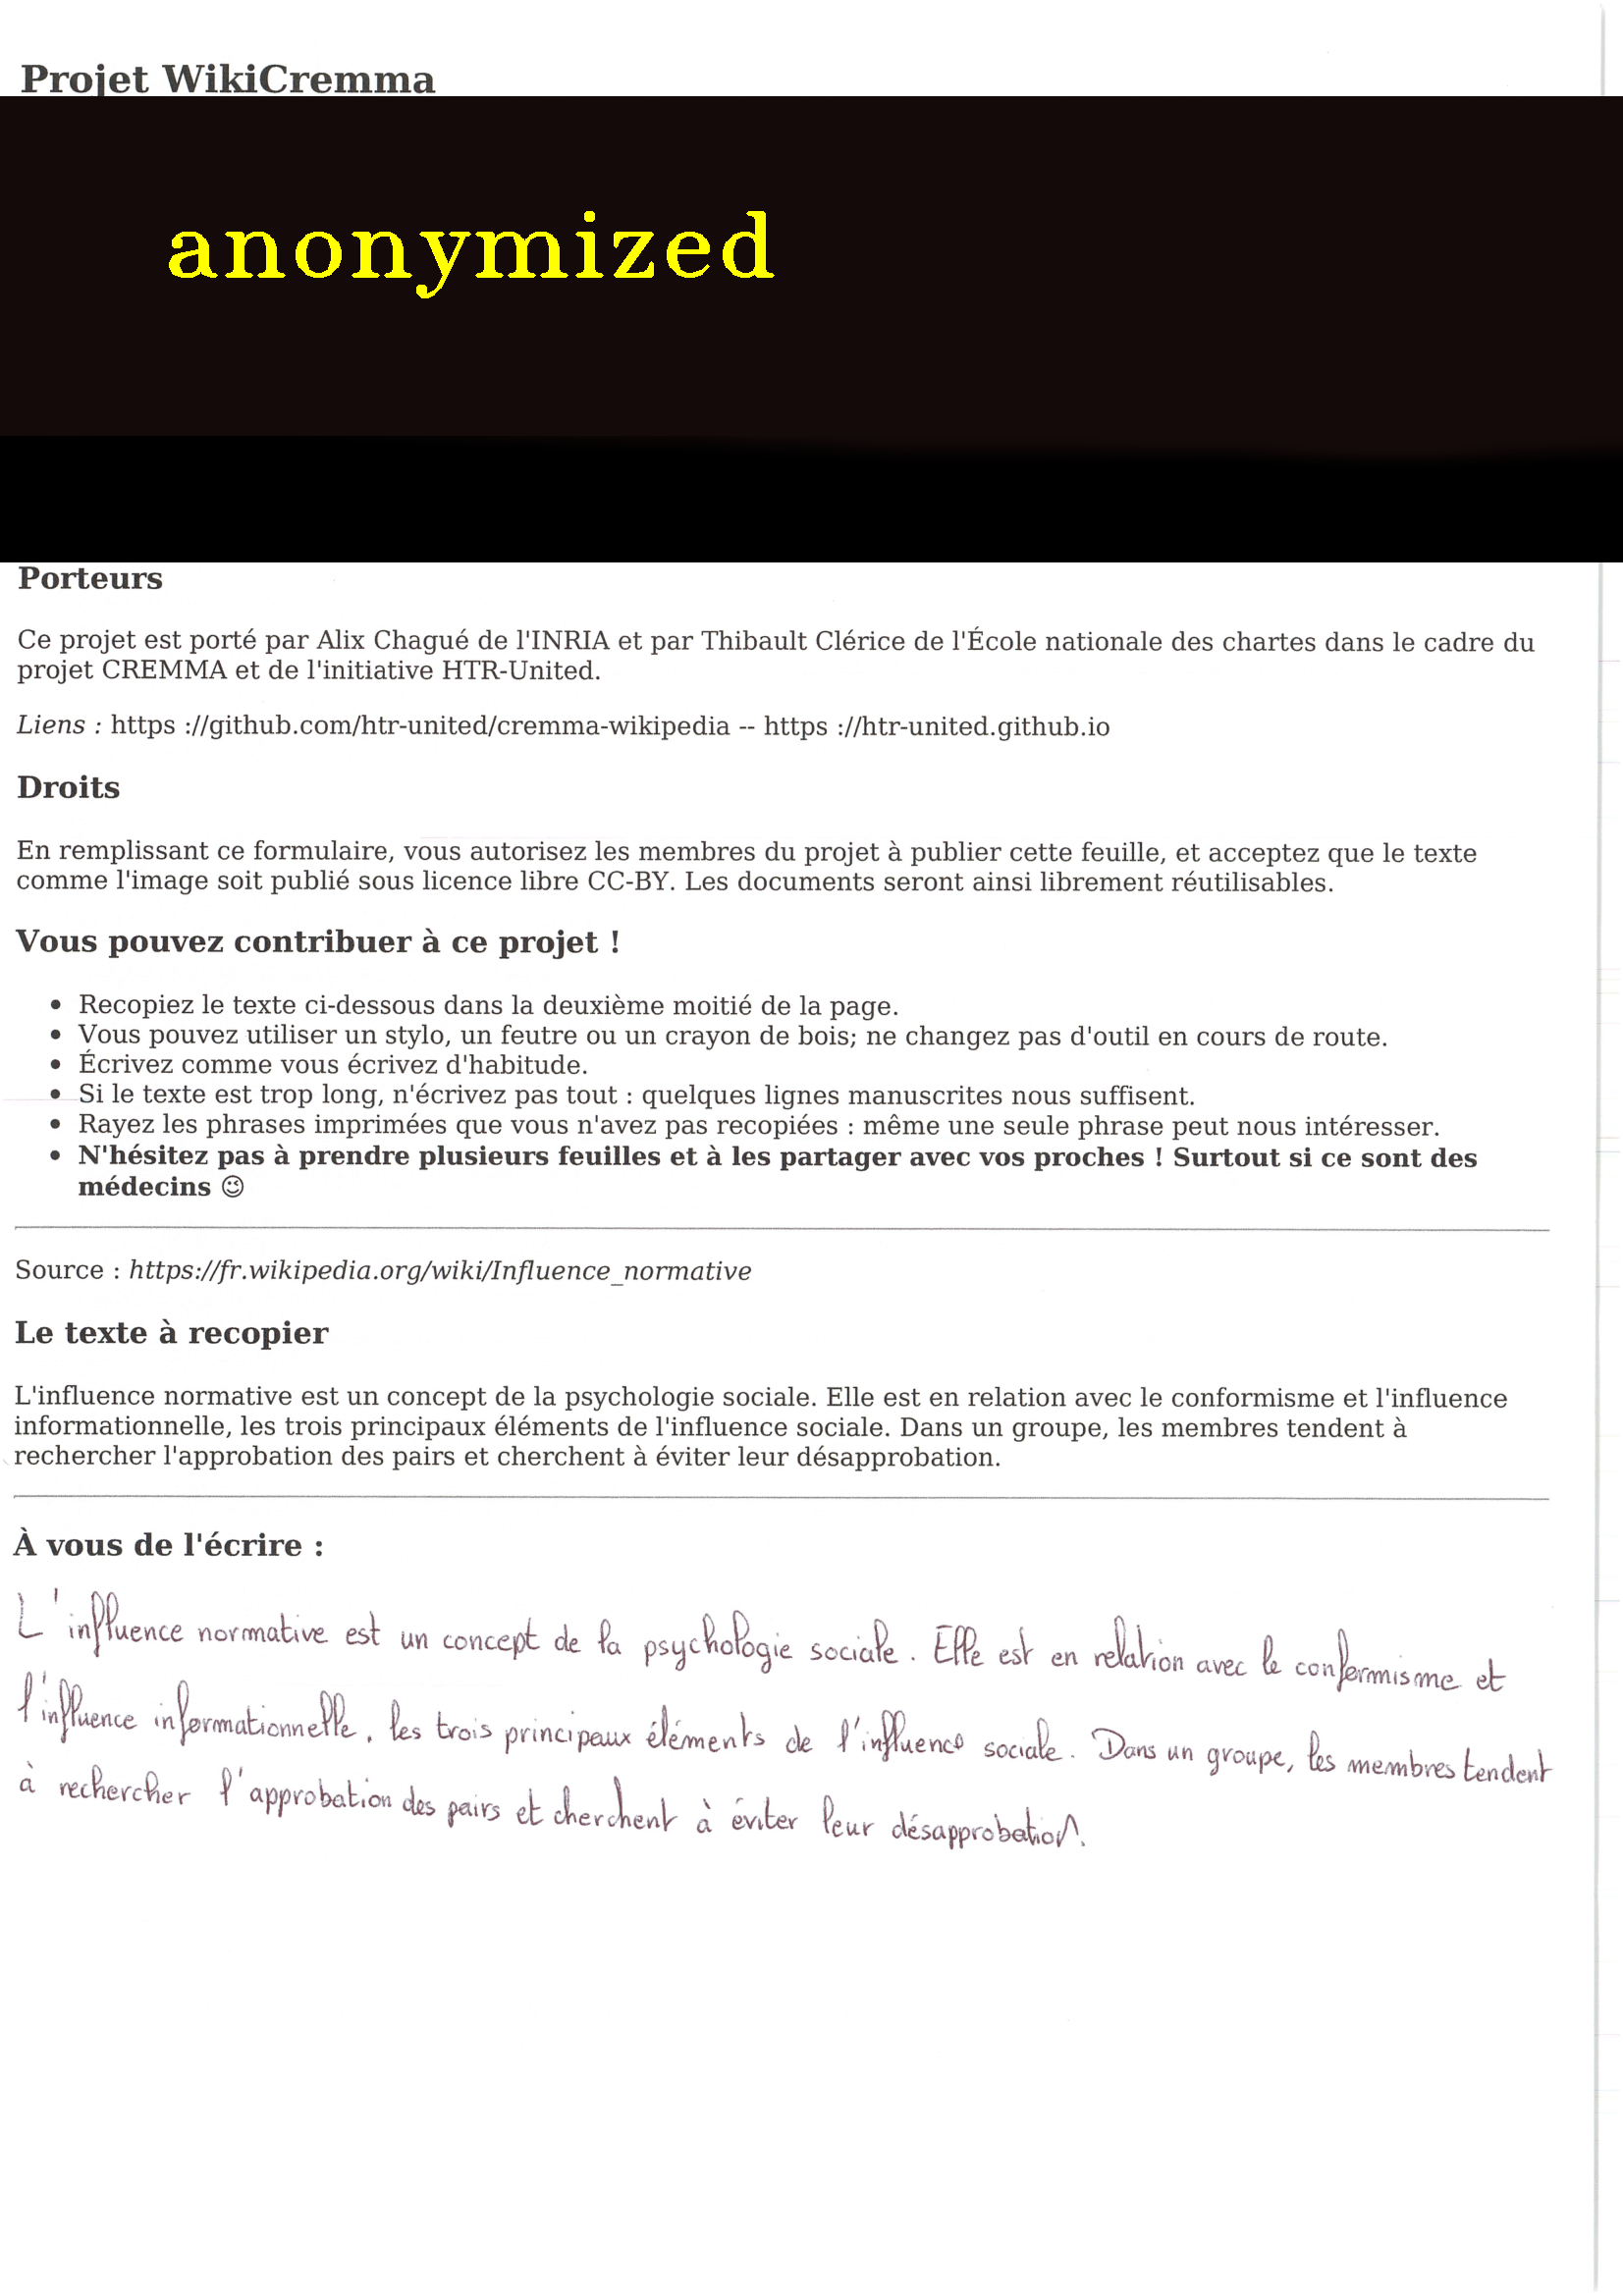 Projet WikiCremma
anonymized
Porteurs
Ce projet est porté par Alix Chagué de l'INRIA et par Thibault Clérice de l'École nationale des chartes dans le cadre du
projet CREMMA et de l'initiative HTR-United.
Liens : https ://github.com/htr-united/cremma-wikipedia -- https ://htr-united.github.io
Droits
En remplissant ce formulaire, vous autorisez les membres du projet à publier cette feuille, et acceptez que le texte
comme l'image soit publié sous licence libre CC-BY. Les documents seront ainsi librement réutilisables.
Vous pouvez contribuer à ce projet !
• Recopiez le texte ci-dessous dans la deuxième moitié de la page.
• Vous pouvez utiliser un stylo, un feutre ou un crayon de bois; ne changez pas d'outil en cours de route.
• Écrivez comme vous écrivez d'habitude.
• Si le texte est trop long, n'écrivez pas tout : quelques lignes manuscrites nous suffisent.
• Rayez les phrases imprimées que vous n'avez pas recopiées : même une seule phrase peut nous intéresser.
• N'hésitez pas à prendre plusieurs feuilles et à les partager avec vos proches ! Surtout si ce sont des
médecins 😉
Source : https://fr.wikipedia.org/wiki/Influence_normative
Le texte à recopier
L'influence normative est un concept de la psychologie sociale. Elle est en relation avec le conformisme et l'influence
informationnelle, les trois principaux éléments de l'influence sociale. Dans un groupe, les membres tendent à
rechercher l'approbation des pairs et cherchent à éviter leur désapprobation.
À vous de l'écrire :
L'influence normative est un concept de la psychologie sociale. Elle est en relation avec le conformisme et
l'influence informationnelle, les trois principaux éléments de l'influence sociale. Dans un groupe, les membres tendent
à rechercher l'approbation des pairs et cherchent à éviter leur désapprobation.